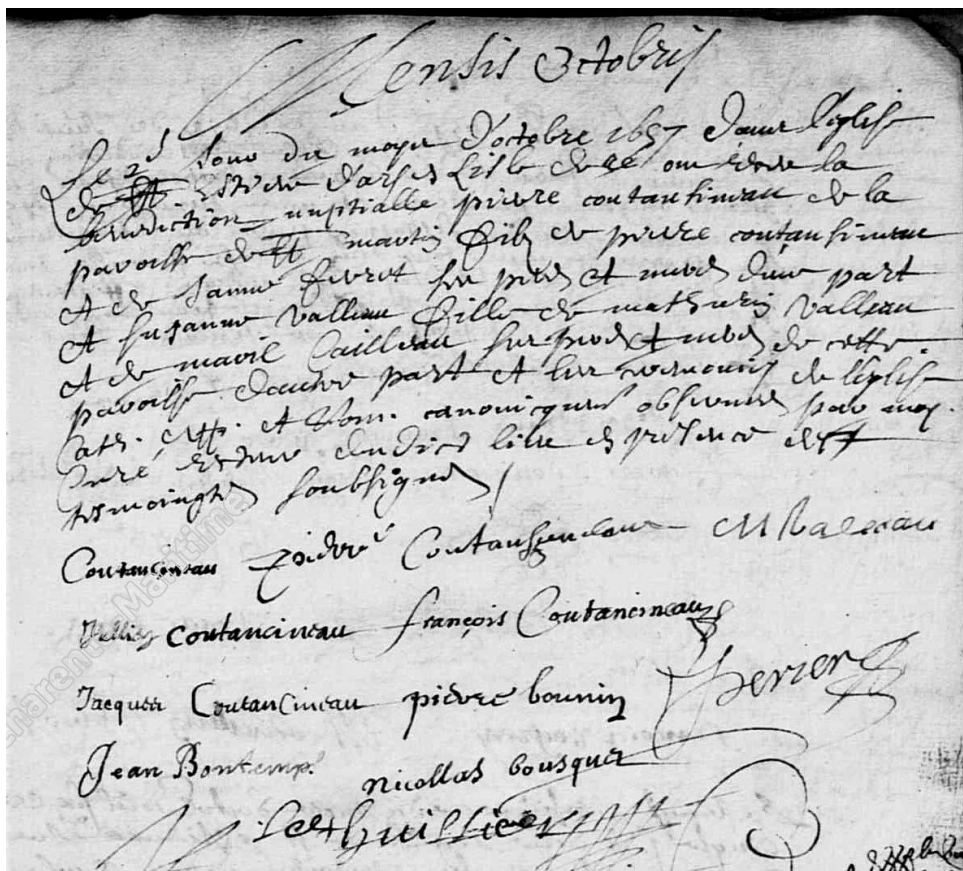 Mensis Octobris
Le 2 Jour du moys d'octobre 1657 dans l'Eglise
de St Estiene d'ars en L'isle de Ré ont receu la
benediction nuptialle pierre coutansineau de la
paroisse de St martin fils de pierre coutansineau
et de Janne ses pere et mere d'une part
Et susanne valleau fille de mathurin valleau
et de marie Cailleau ses pere et mere de cette
paroisse d'autre part et les ceremonies de l'Eglise
cath. app. et Rom. canonicques observees par moy
Curé dudict lieu en presence des
tesmoingts soubsignes
Coutancineau pierre Coutansineau M Valleau
Coutancineau françois Coutancineau
Jacques Coutancineau pierre bounin
Jean Bontemps Nicollas bousquet